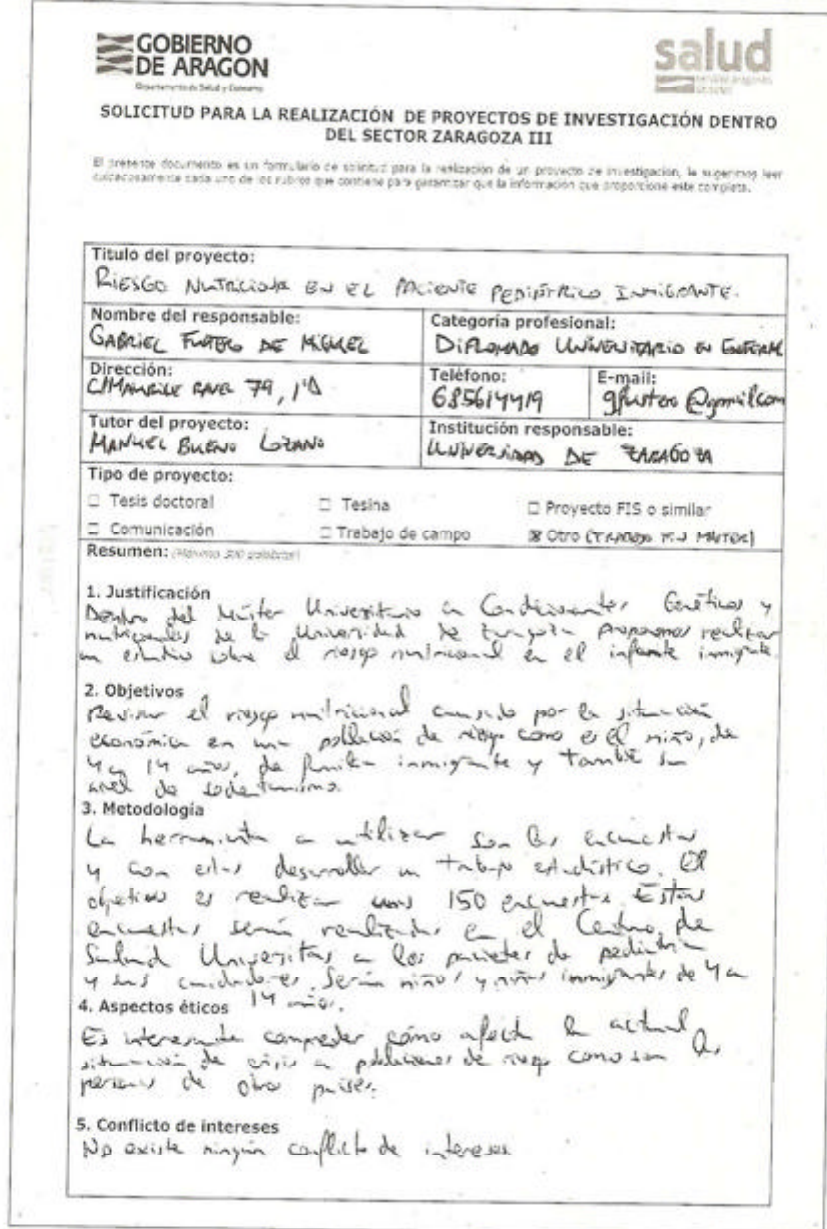 GOBIERNO
DE ARAGON
Departamento de Salud y Consumo
salud
servicio aragonés
de salud
SOLICITUD PARA LA REALIZACIÓN DE PROYECTOS DE INVESTIGACIÓN DENTRO
DEL SECTOR ZARAGOZA III
El presente documento es un formulario de solicitud para la realización de un proyecto de investigación, le sugerimos leer
cuidadosamente cada uno de los rubros que contiene para garantizar que la información que proporcione este completa.
Titulo del proyecto:
RIESGO NUTRICIONAL EN EL PACIENTE PEDIÁTRICO INMIGRANTE.
Nombre del responsable:
GABRIEL FUSTERO DE MIGUEL
Categoría profesional:
DIPLOMADO UNIVERSITARIO EN ENFERM
Dirección:
C/MAURICE RAVEL 79, 1ºD
Teléfono:
685614419
E-mail:
gfustero@gmail.com
Tutor del proyecto:
MANUEL BUENO LOZANO
Institución responsable:
UNIVERSIDAD DE ZARAGOZA
Tipo de proyecto:
□ Tesis doctoral □ Tesina □ Proyecto FIS o similar
□ Comunicación □ Trabajo de campo ☒ Otro (TRABAJO FIN MÁSTER)
Resumen: (Máximo 300 palabras)
1. Justificación
Dentro del Máster Universitario en Condicionantes Genéticos y
nutricionales de la Universidad de Zaragoza proponemos realizar
un estudio sobre el riesgo nutricional en el infante inmigrante.
2. Objetivos
Revisar el riesgo nutricional causado por la situación
económica en una población de riesgo como es el niño, de
4 a 14 años, de familia inmigrante y también su
nivel de sedentarismo.
3. Metodología
La herramienta a utilizar son las encuestas
y con estas desarrollar un trabajo estadístico. El
objetivo es realizar unas 150 encuestas. Estas
encuestas serán realizadas en el Centro de
Salud Universitas a los pacientes de pediatría
y sus cuidadores. Serán niños y niñas inmigrantes de 4 a
14 años.
4. Aspectos éticos
Es interesante comprender cómo afecta la actual
situación de crisis a poblaciones de riesgo como son las
personas de otros países.
5. Conflicto de intereses
No existe ningún conflicto de intereses